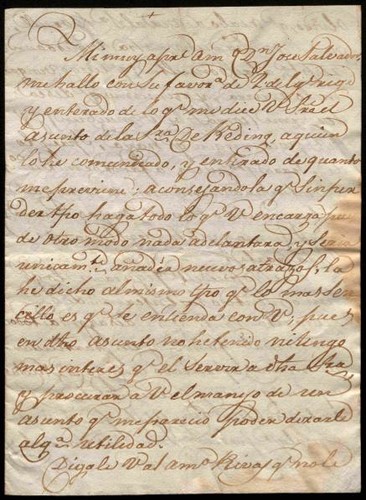 Mi muy apre. am. Dn. Jose Salvador,
me hallo con su favor. de 2 del q.e rige
y enterado de lo q.e me dice V. sre el
asunto de la Sra. De Reding, a quien
lo he comunicado, y entirado de quanto
me previene; aconsejandola q.e sin per
der tpo haga todo lo q.e V encarga pu
de otro modo nada adelantara, y seria
unicam.te añadir nuevos atrazos, la
he dicho al mismo tpo q.e lo mas sen
cillo es q.e se entienda con V; pues
en dho asunto no he tenido ni tengo
mas interes q.e el servir a dha Sra,
y procurar a V el manejo de un
asunto q.e me parecio poder dexarle
alg.a utilidad.
Digale V al am.o Rivas q.e no le